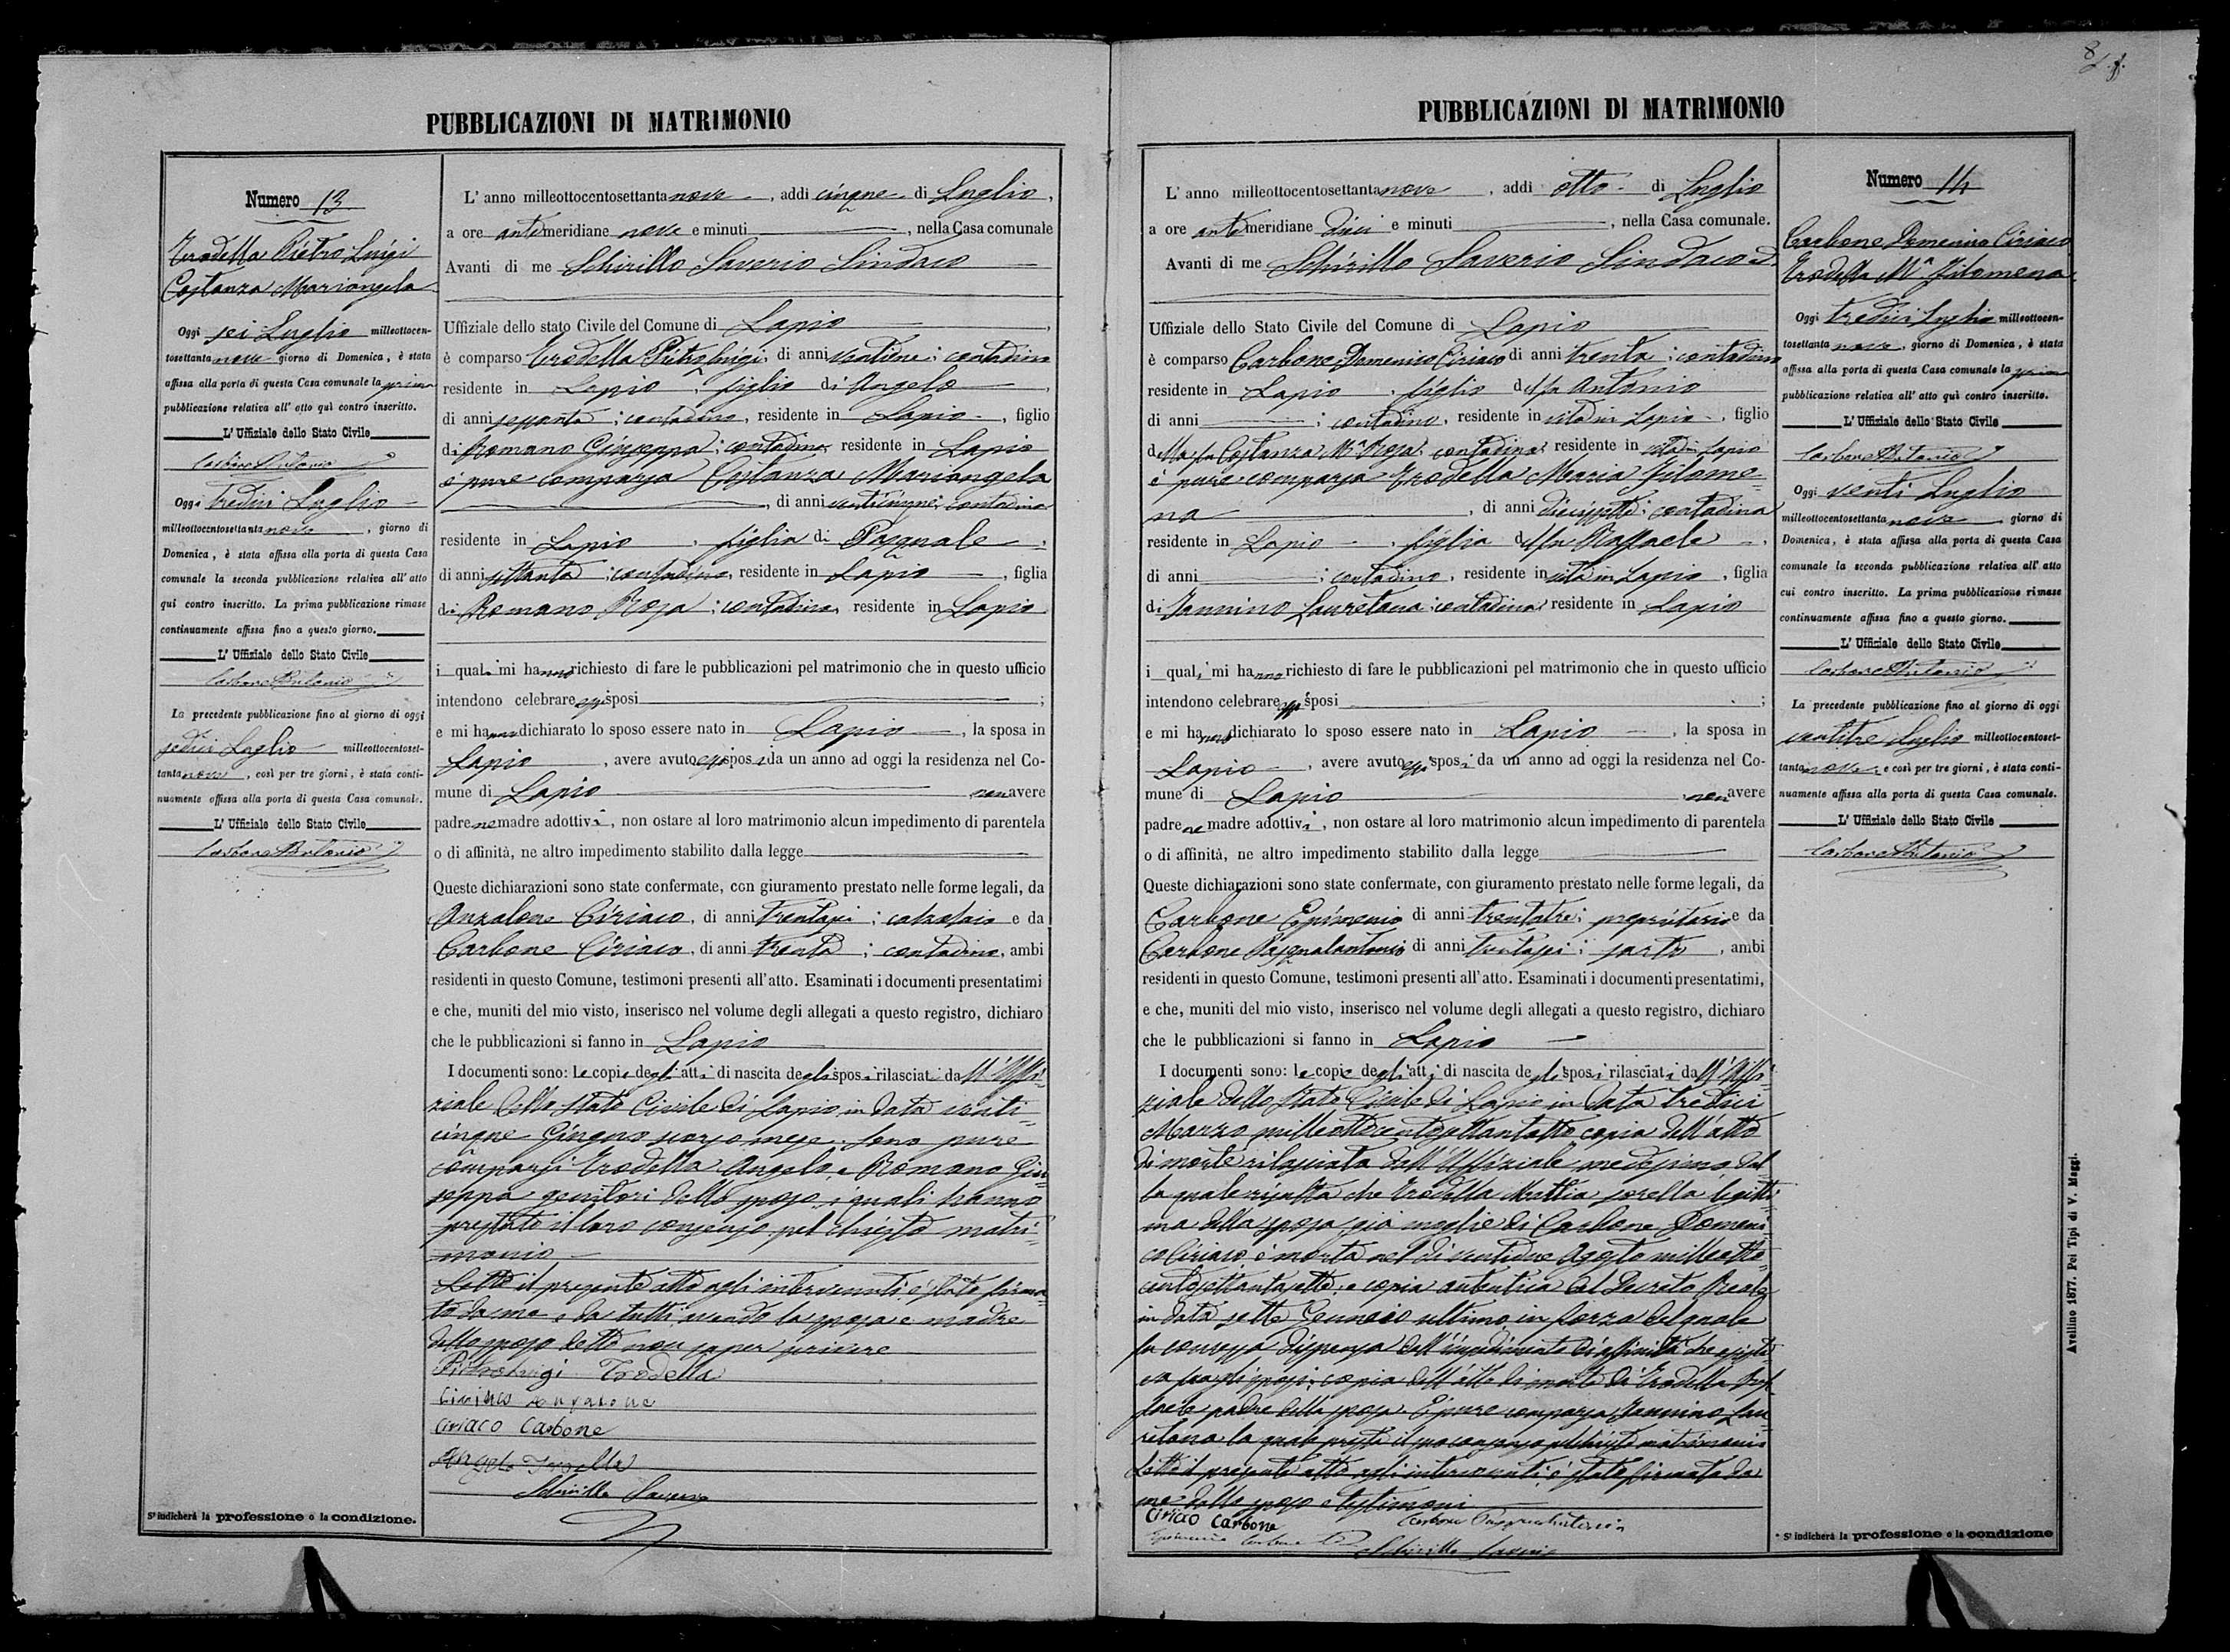 8
PUBBLICAZIONI DI MATRIMONIO
Numero 13
Trodella Pietro Luigi
Costanza Mariangela
Oggi sei Luglio milleottocen-
tosettantanove giorno di Domenica, è stata
affissa alla porta di questa Casa comunale la prima
pubblicazione relativa all' atto quì contro inscritto.
L' Uffiziale dello Stato Civile
Carbone Antonio
Oggi tredici Luglio
milleottocentosettantanove, giorno di
Domenica, è stata affissa alla porta di questa Casa
comunale la seconda pubblicazione relativa all' atto
quì contro inscritto. La prima pubblicazione rimase
continuamente affissa fino a questo giorno.
L' Uffiziale dello Stato Civile
Carbone Antonio
La precedente pubblicazione fino al giorno di oggi
sedici Luglio milleottocentoset-
tantanove, così per tre giorni, è stata conti-
nuamente affissa alla porta di questa Casa comunale.
L' Uffiziale dello Stato Civile
Carbone Antonio
Si indicherà la professione o la condizione.
L' anno milleottocentosettantanove, addì cinque di Luglio,
a ore antimeridiane nove e minuti , nella Casa comunale
Avanti di me Schirillo Saverio Sindaco
Uffiziale dello stato Civile del Comune di Lapio,
è comparso Trodella Pietro Luigi, di anni ventidue; contadino
residente in Lapio, figlio di Angelo,
di anni sessanta; contadino, residente in Lapio, figlio
di Romano Giuseppa; contadina residente in Lapio
è pure comparsa Costanza Mariangela
, di anni venticinque; contadina
residente in Lapio, figlia di Pasquale,
di anni settanta; contadino, residente in Lapio, figlia
di Romano Rosa; contadina, residente in Lapio
i quali mi hanno richiesto di fare le pubblicazioni pel matrimonio che in questo ufficio
intendono celebrare essi sposi ;
e mi hanno dichiarato lo sposo essere nato in Lapio, la sposa in
Lapio, avere avuto essi sposi da un anno ad oggi la residenza nel Co-
mune di Lapio non avere
padre ne madre adottivi, non ostare al loro matrimonio alcun impedimento di parentela
o di affinità, ne altro impedimento stabilito dalla legge
Queste dichiarazioni sono state confermate, con giuramento prestato nelle forme legali, da
Anzalone Ciriaco, di anni trentasei; calzolaio e da
Carbone Ciriaco, di anni trenta; contadino, ambi
residenti in questo Comune, testimoni presenti all' atto. Esaminati i documenti presentatimi
e che, muniti del mio visto, inserisco nel volume degli allegati a questo registro, dichiaro
che le pubblicazioni si fanno in Lapio
I documenti sono: le copie degli atti di nascita degli sposi rilasciati dall'Uffi=
ziale dello Stato Civile di Lapio in data venti=
cinque Giugno scorso mese. Sono pure
comparsi Trodella Angelo, e Romano Giu=
seppa genitori dello sposo, i quali hanno
prestato il loro consenso pel chiesto matri=
monio
Letto il presente atto agli intervenuti è stato firma=
to da me e da tutti, avendo la sposa e madre
dello sposo detto non saper scrivere
Pietro Luigi Trodella
Ciriaco Anzalone
Ciriaco Carbone
Angelo Trodella
Schirillo Saverio
PUBBLICAZIONI DI MATRIMONIO
L' anno milleottocentosettantanove, addì otto di Luglio
a ore antimeridiane dieci e minuti , nella Casa comunale.
Avanti di me Schirillo Saverio Sindaco
Uffiziale dello Stato Civile del Comune di Lapio
è comparso Carbone Domenico Ciriaco di anni trenta; contadino
residente in Lapio, figlio del fu Antonio
di anni ; contadino, residente in vita in Lapio, figlio
della fu Costanza Mª Rosa; contadina residente in vita in Lapio
è pure comparsa Trodella Maria Filome=
na , di anni diciassette; contadina
residente in Lapio, figlia del fu Raffaele,
di anni ; contadino, residente in vita in Lapio, figlia
di Iannino Lauretana; contadina residente in Lapio
i quali mi hanno richiesto di fare le pubblicazioni pel matrimonio che in questo ufficio
intendono celebrare essi sposi ;
e mi hanno dichiarato lo sposo essere nato in Lapio, la sposa in
Lapio, avere avuto essi sposi da un anno ad oggi la residenza nel Co-
mune di Lapio non avere
padre ne madre adottivi, non ostare al loro matrimonio alcun impedimento di parentela
o di affinità, ne altro impedimento stabilito dalla legge
Queste dichiarazioni sono state confermate, con giuramento prestato nelle forme legali, da
Carbone Epimenio di anni trentatre; proprietario e da
Carbone Pasqualantonio di anni trentasei; sarto, ambi
residenti in questo Comune, testimoni presenti all' atto. Esaminati i documenti presentatimi,
e che, muniti del mio visto, inserisco nel volume degli allegati a questo registro, dichiaro
che le pubblicazioni si fanno in Lapio
I documenti sono: le copie degli atti di nascita degli sposi rilasciati dall'Uffi=
ziale dello Stato Civile di Lapio in data tredici
Marzo milleottocentosettantotto copia dell'atto
di morte rilasciata dall'Uffiziale medesimo, dal
la quale risulta che Trodella Mattia sorella legitti=
ma della sposa già moglie di Carbone Domeni
co Ciriaco, è morta nel dì ventidue Agosto milleotto=
centosettantasette; e copia autentica del Decreto Reale
in data sette Gennaio ultimo in forza del quale
fu concessa dispensa dell'impedimento di affinità che esiste=
va fra gli sposi; copia dell'atto di morte di Trodella Raf=
faele padre della sposa. È pure comparsa Iannino Lau=
retana la quale presta il suo consenso pel chiesto matrimonio
Letto il presente atto agli intervenuti, è stato firmato da
me dallo sposo e testimoni
Ciriaco Carbone
Carbone Pasqualantonio
Epimenio Carbone
Schirillo Saverio
Numero 14
Carbone Domenico Ciriaco
Trodella Mª Filomena
Oggi tredici Luglio milleottocen-
tosettantanove, giorno di Domenica, è stata
affissa alla porta di questa Casa comunale la prima
pubblicazione relativa all' atto quì contro inscritto.
L' Uffiziale dello Stato Civile
Carbone Antonio
Oggi venti Luglio
milleottocentosettantanove giorno di
Domenica, è stata affissa alla porta di questa Casa
comunale la seconda pubblicazione relativa all' atto
cui contro inscritto. La prima pubblicazione rimase
continuamente affissa fino a questo giorno.
L' Uffiziale dello Stato Civile
Carbone Antonio
La precedente pubblicazione fino al giorno di oggi
ventitre Luglio milleottocentoset-
tantanove e così per tre giorni, è stata conti-
nuamente affissa alla porta di questa Casa comunale.
L' Uffiziale dello Stato Civile
Carbone Antonio
* Si indicherà la professione o la condizione
Avellino 1877. Pei Tipi di V. Maggi.